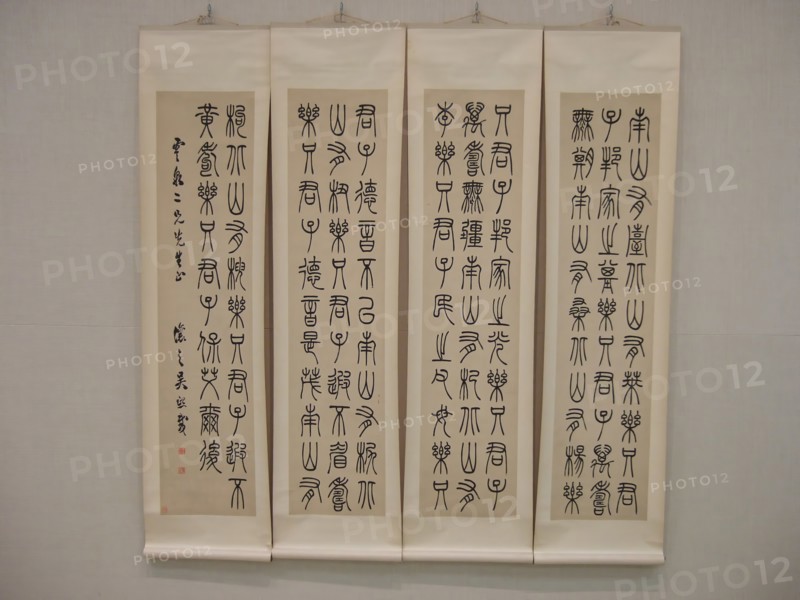 南山有臺北山有萊樂只君
子邦家之基樂只君子萬壽
無期南山有桑北山有楊樂
只君子邦家之光樂只君子
萬壽無疆南山有杞北山有
李樂只君子民之父母樂只
君子德音不已南山有栲北
山有杻樂只君子遐不眉壽
樂只君子德音是茂南山有
枸北山有楰樂只君子遐不
黃耇樂只君子保艾爾後
二兄先生正 讓之吳熙載
PHOTO12